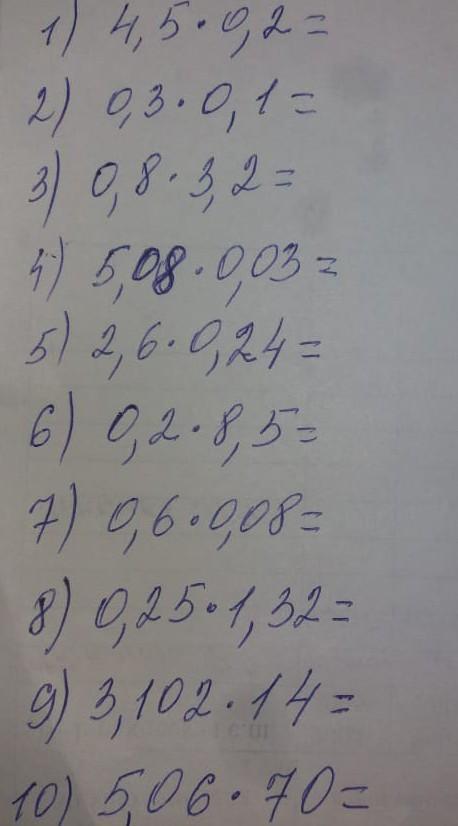 1) 4,5·0,2=
2) 0,3·0,1=
3) 0,8·3,2=
4) 5,08·0,03=
5) 2,6·0,24=
6) 0,2·8,5=
7) 0,6·0,08=
8) 0,25·1,32=
9) 3,102·14=
10) 5,06·70=